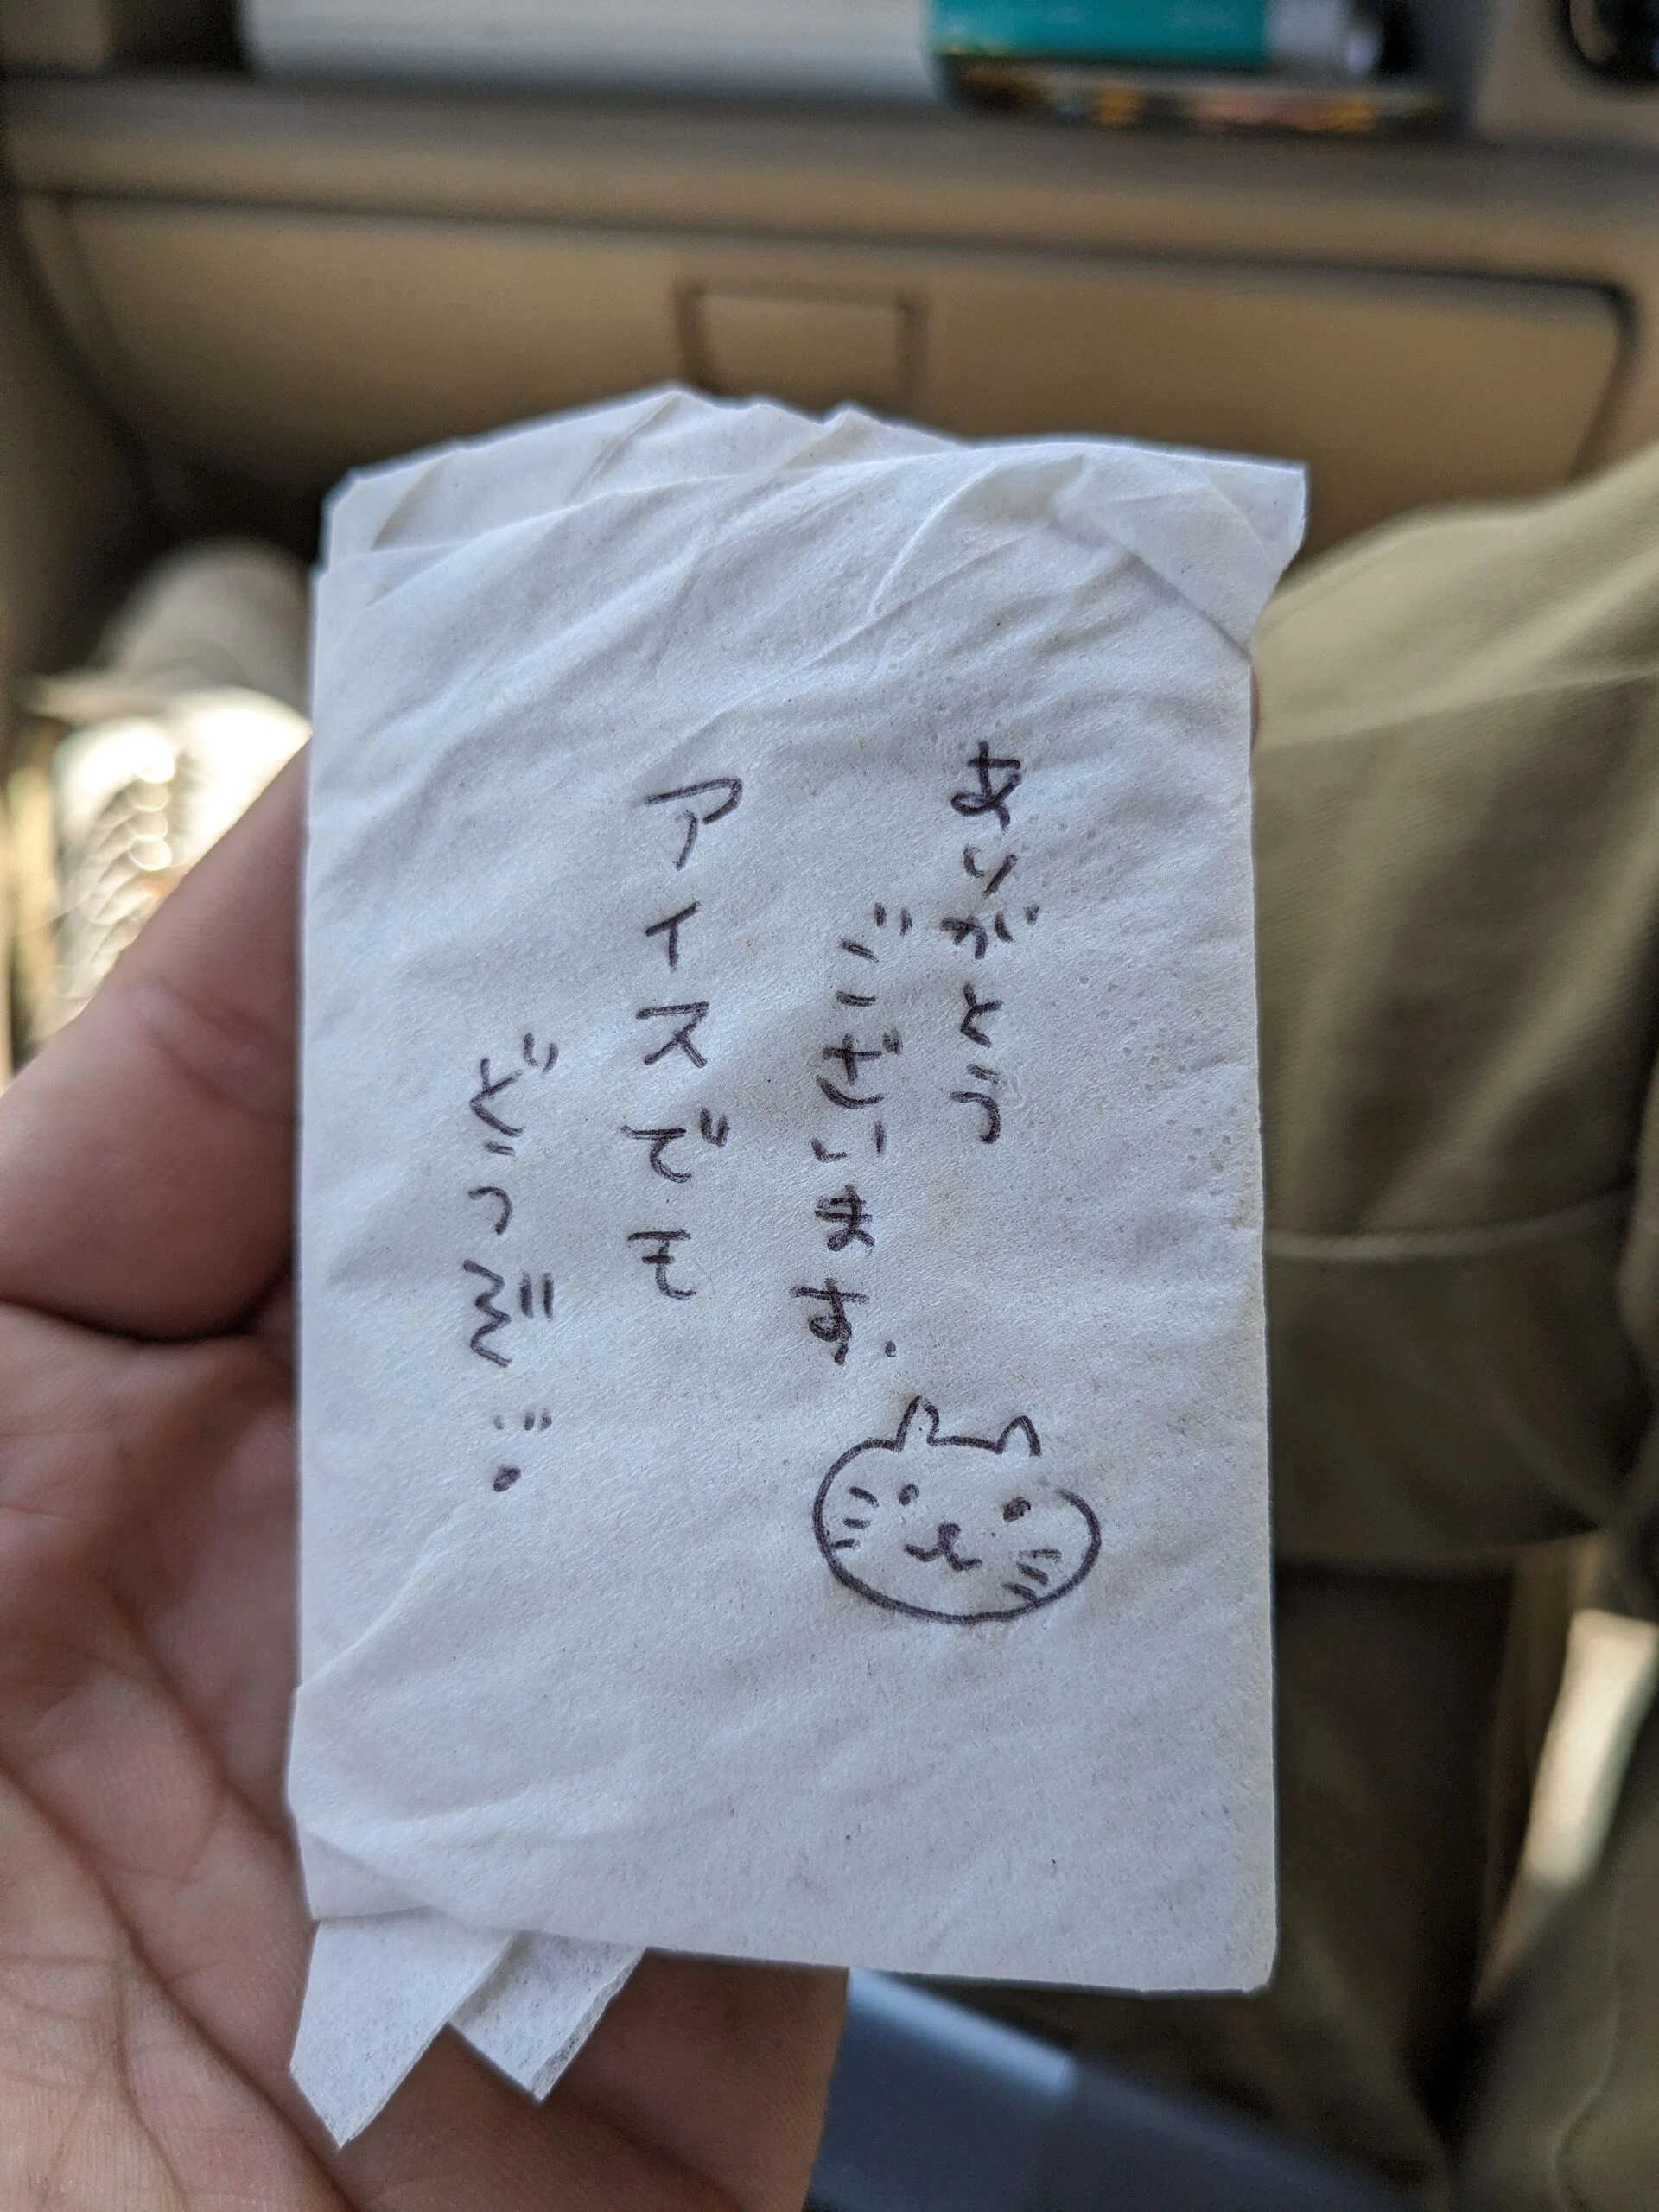 ありがとう
ございます.
アイスでも
どうぞ